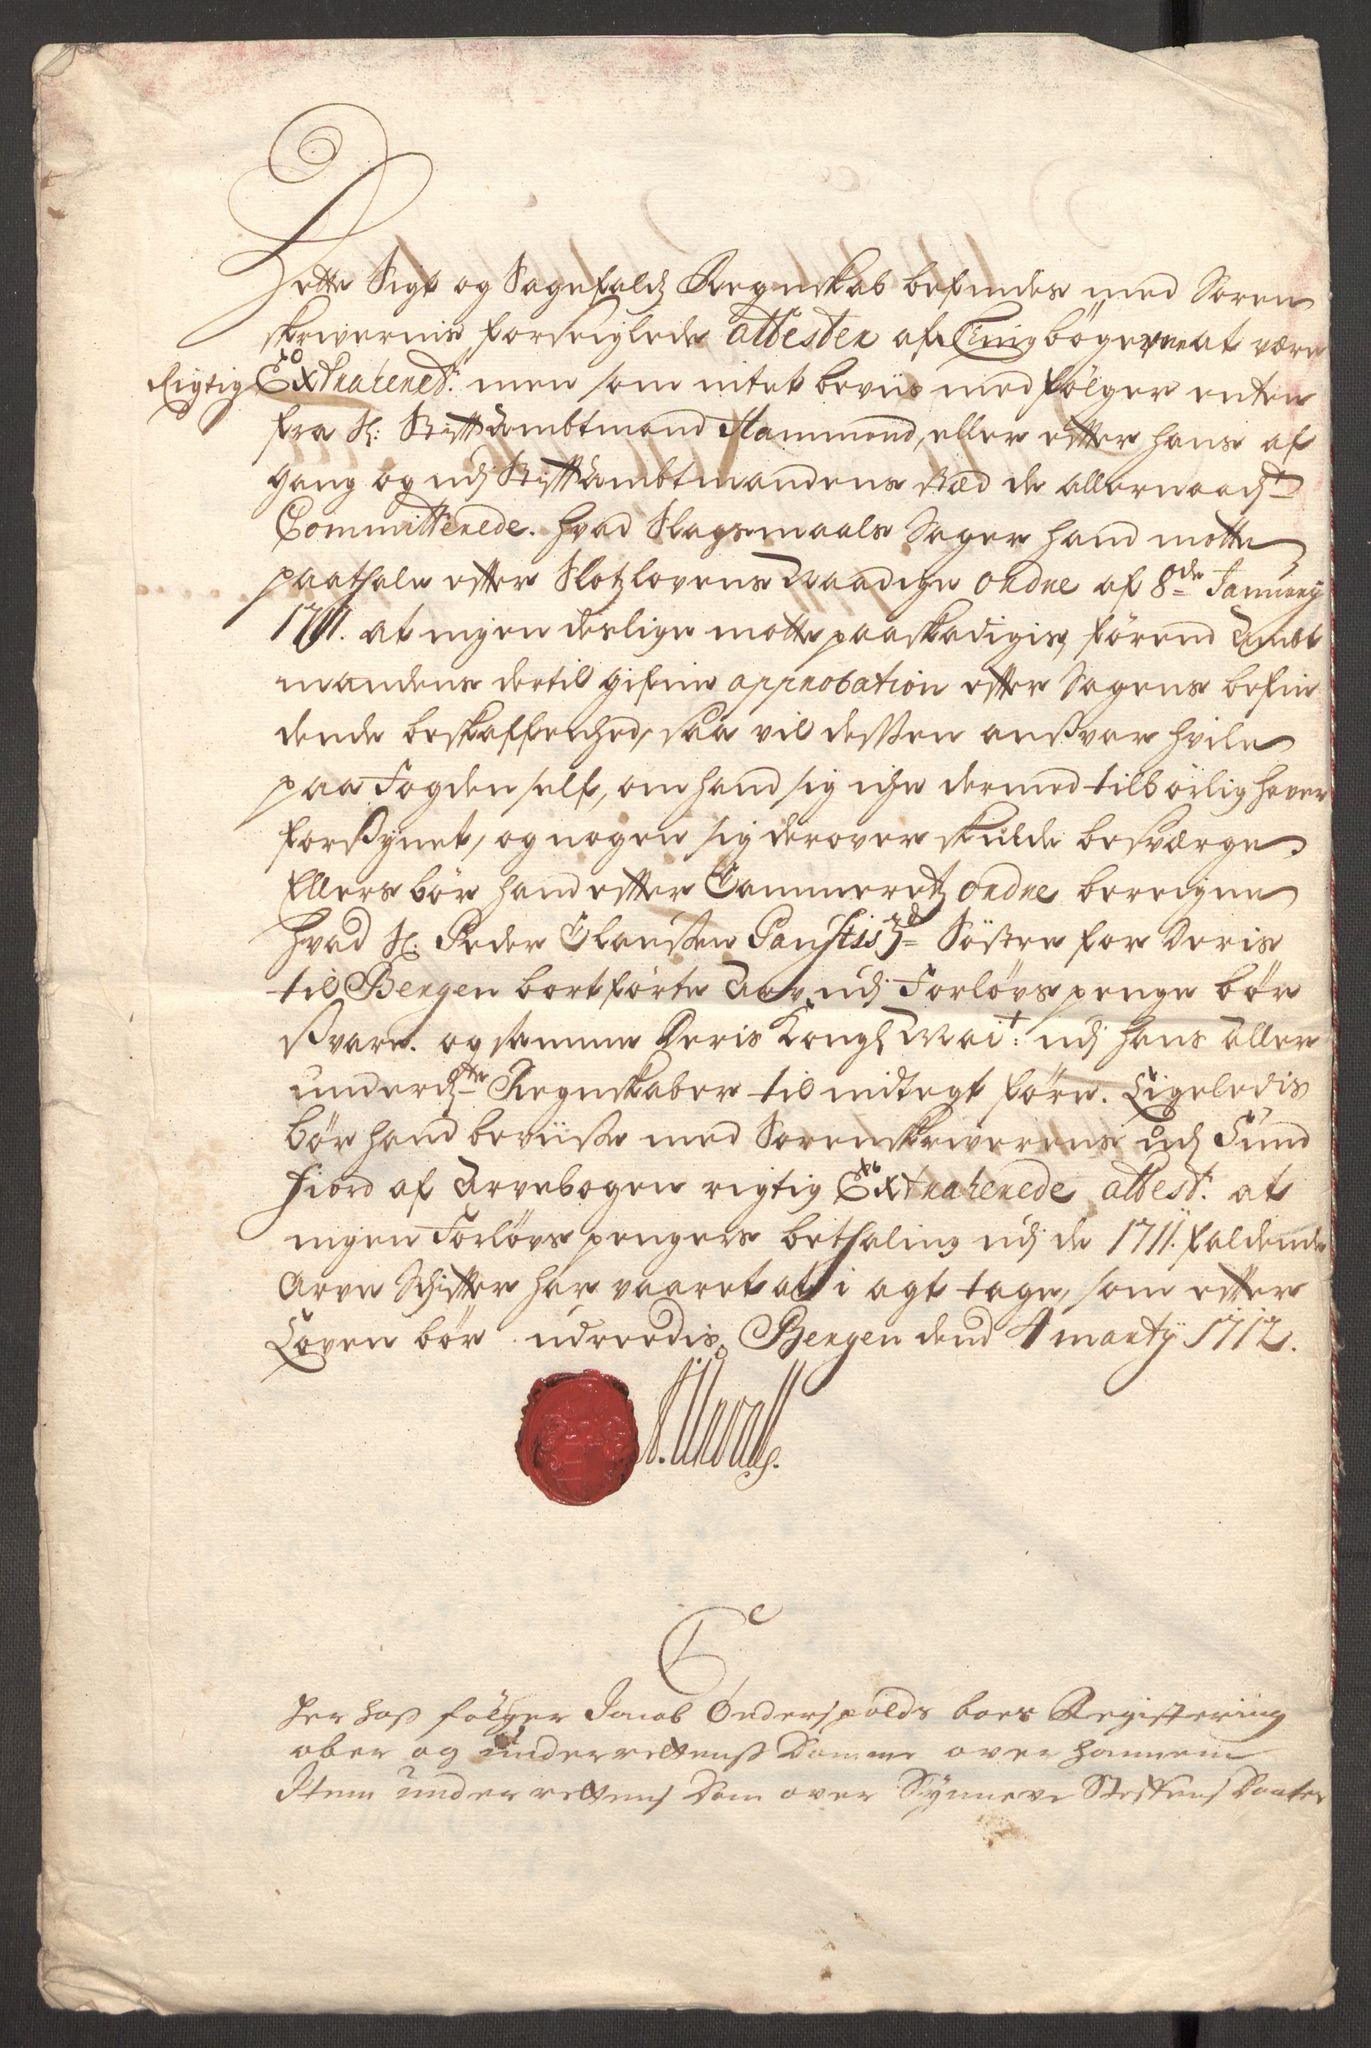 Dette Sigt og Sagefalds Regnskab befindes med Soren
skrivernis forseiglede attester af Tingbøgerne at være
Rigtig Extraheret. men som intet beviis medfølger enten
fra H: Stifft Ambtmand Hammond, eller effter hans af
gang og udj StifftAmbtmandens stæd de allernaadste
Committerede. hvad Slagsmaals Sager hand motte
paathale effter Slotzlovens Naadige ordre af 8de January
1711. at ingen deslige motte paaskadigis, førend Ambt
mandens dertil gifne approbation effter Sagens befin
dende beskaffenhed, saa vil dessen ansvar hvile
paa Fogden self, om hand sig icke dermed tilbørlig haver
forsynet, og nogen sig derover skulde besværge.
Ellers bør hand effter Cammeretz ordre beregne
hvad H: Peder Claussen Søster for Deris
til Bergen bortførte Arv, udj Forlovs penge bør
svare. og samme Deris Kongl Mait: udj hans aller
underdste Regnskaber til indtegt føre. Ligeledis
bør hand beviisse med Sorenskriverens udj Sund
fiord af Arvebogen rigtig Extraherede attest. at
ingen Forlovs pengers bethaling udj de 1711. faldende
Arve Schiffter har vaaret at i agt tage, som effter
Loven bør udreedis. Bergen dend 4 martij 1712.
Her hoss følger Jacob boes Registering
ober og underrettenss Domme over hannem
Item underrettens Dom over Synneve Steffens Daater